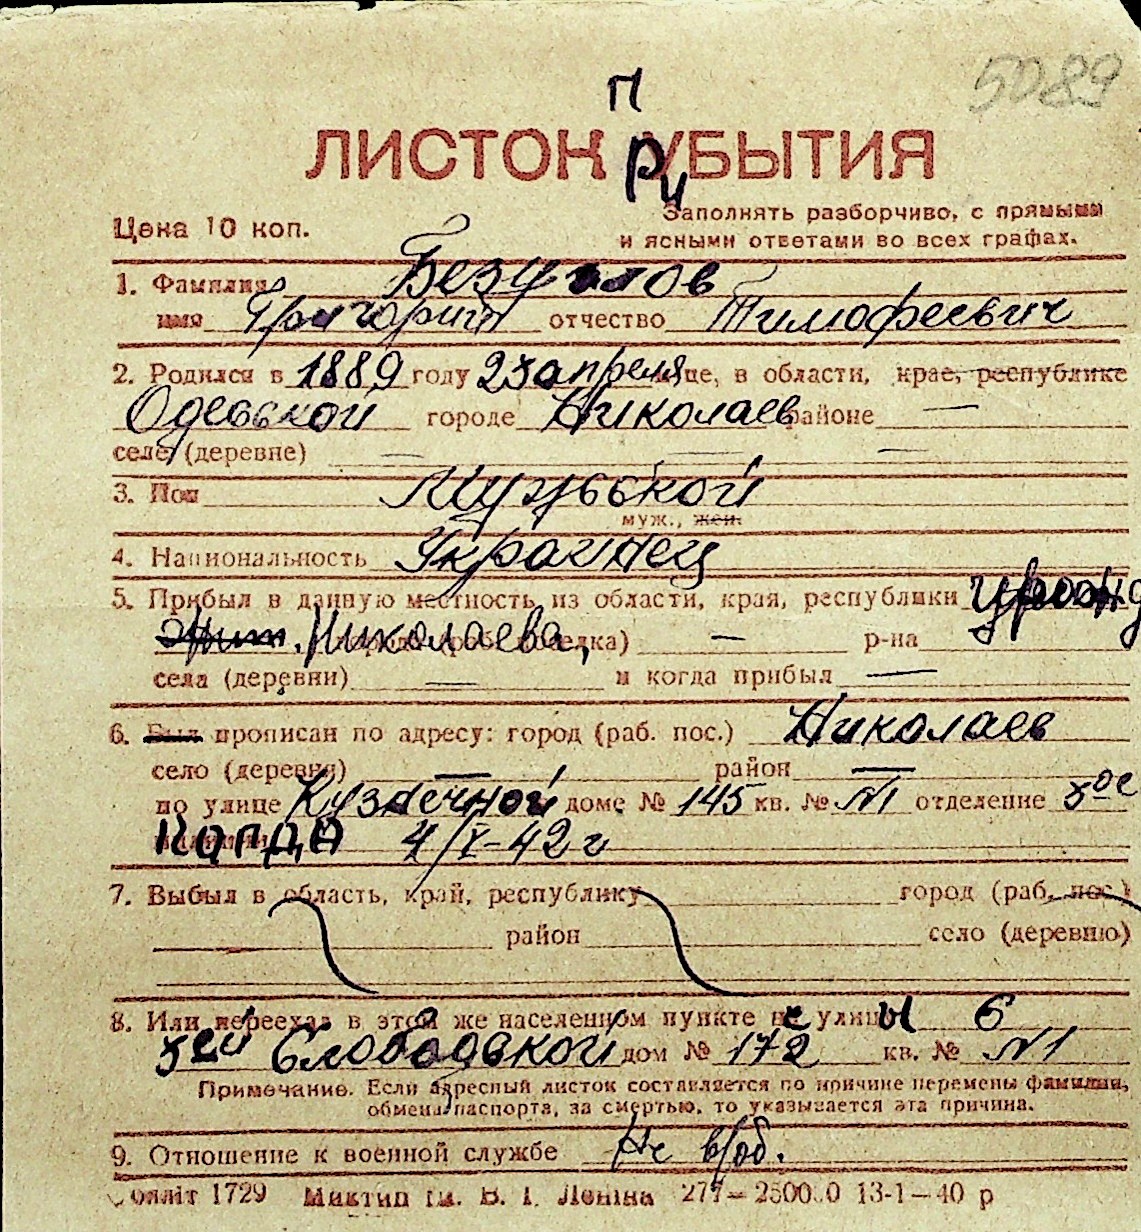 5089
П
ЛИСТОК РИ УБЫТИЯ
Цена 10 коп.
Заполнять разборчиво, с прямыми
и ясными ответами во всех графах.
1. Фамилия Безуглов
имя Григорий отчество Тимофеевич
2. Родился в 1889 году 23 апреля м-це, в области, крае, республике
Одесской городе Николаев районе —
селе (деревне) — — —
3. Пол Мужской
муж., жен.
4. Национальность Украинец
5. Прибыл в данную местность из области, края, республики
Николаева, — р-на
села (деревни) — и когда прибыл —
6. Был прописан по адресу: город (раб. пос.) Николаев
село (деревня) — район —
по улице Кузнечной доме № 145 кв. № N1 отделение 3ое
4/I-42 г
7. Выбыл в область, край, республику город (раб. пос.)
район село (деревню)
8. Или переехал в этом же населенном пункте с улицы 6
3ей Слободской дом № 172 кв. № N1
Примечание. Если адресный листок составляется по причине перемены фамилии,
обмена паспорта, за смертью, то указывается эта причина.
9. Отношение к военной службе Не в/об.
Облліт 1729 Миктип ім. В. І. Леніна 277— 250000 13-1—40 р